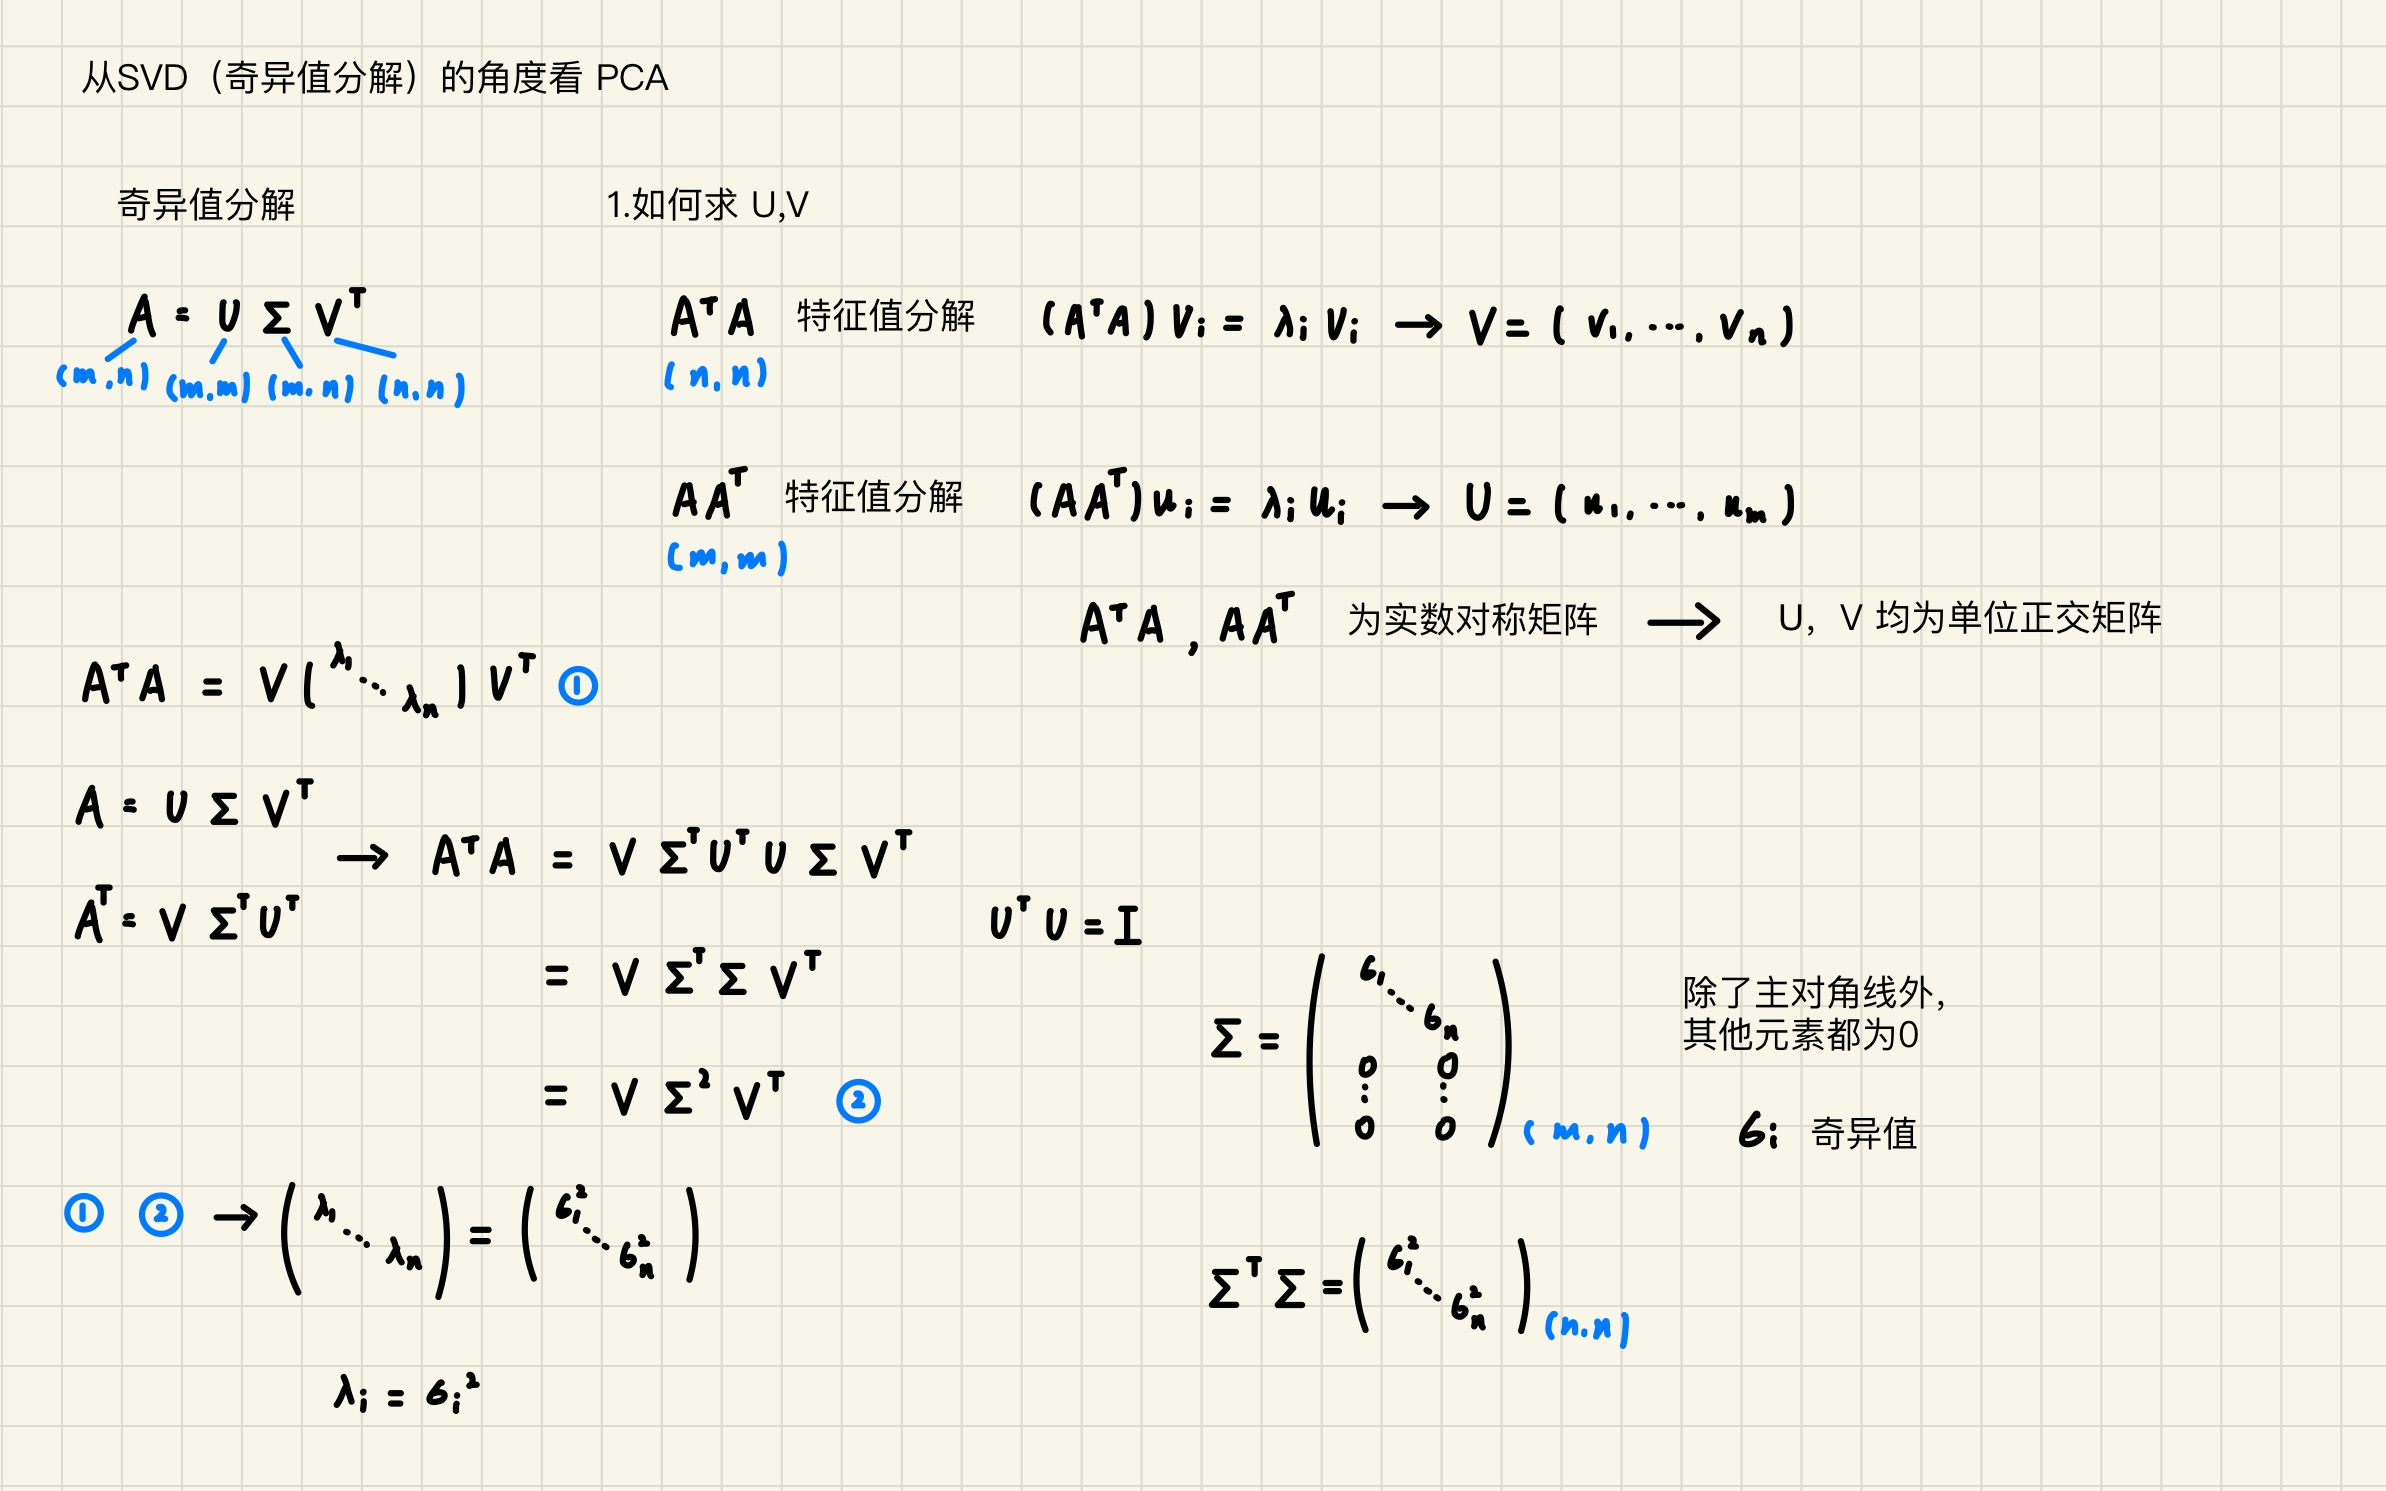 从SVD（奇异值分解）的角度看 PCA
奇异值分解
A = U Σ Vᵀ
(m,n) (m,m) (m,n) (n,n)
1.如何求 U,V
AᵀA 特征值分解 (AᵀA) vᵢ = λᵢ vᵢ → V = ( v₁, ⋯, vₙ )
(n,n)
AAᵀ 特征值分解 (AAᵀ) uᵢ = λᵢ uᵢ → U = ( u₁, ⋯, uₘ )
(m,m)
AᵀA , AAᵀ 为实数对称矩阵 → U，V 均为单位正交矩阵
AᵀA = V ( λ₁ ⋱ λₙ ) Vᵀ ①
A = U Σ Vᵀ
Aᵀ = V ΣᵀUᵀ
→ AᵀA = V ΣᵀUᵀ U Σ Vᵀ
UᵀU = I
= V ΣᵀΣ Vᵀ
= V Σ² Vᵀ ②
Σ = ( σ₁ ⋱ σₙ
0 0
⋮ ⋮
0 0 ) (m,n)
除了主对角线外，
其他元素都为0
σᵢ 奇异值
① ② → ( λ₁ ⋱ λₙ ) = ( σ₁² ⋱ σₙ² )
ΣᵀΣ = ( σ₁² ⋱ σₙ² ) (n,n)
λᵢ = σᵢ²